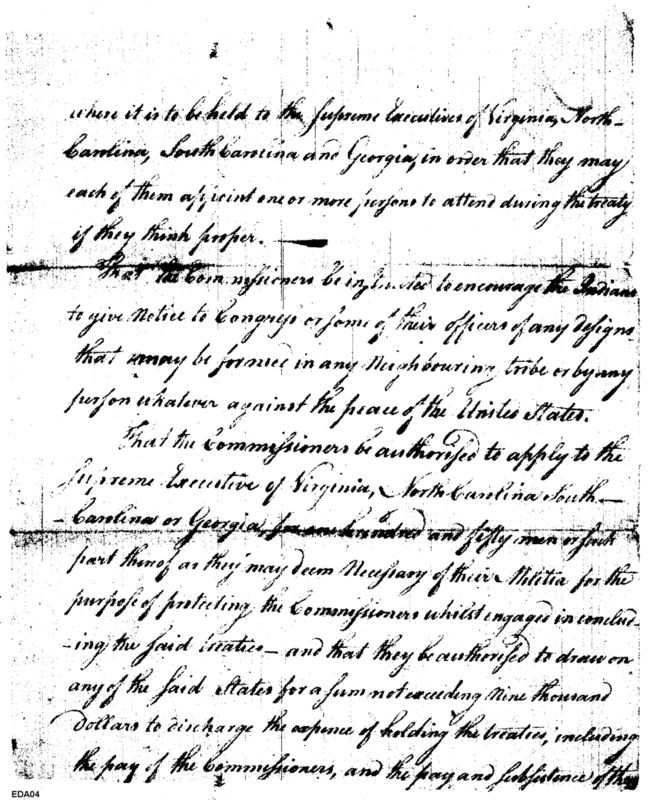 where it is to be held to the Supreme Executives of Virginia, North-
Carolina, South Carolina and Georgia, in order that they may
each of them appoint one or more persons to attend during the treaty
if they think proper. —
That the Commissioners be instructed to encourage the Indians
to give Notice to Congress or some of their officers of any designs
that may be formed in any Neighbouring tribe or by any
person whatever against the peace of the United States.
That the Commissioners be authorised to apply to the
Supreme Executive of Virginia, North Carolina South—
-Carolina or Georgia, for one hundred and fifty men or such
part thereof as they may deem Necessary of their Militia for the
purpose of protecting the Commissioners whilst engaged in conclud-
-ing the said treaties — and that they be authorised to draw on
any of the said States for a sum not exceeding Nine thousand
dollars to discharge the expence of holding the treaties, including
the pay of the Commissioners, and the pay and subsistence of the
EDA04